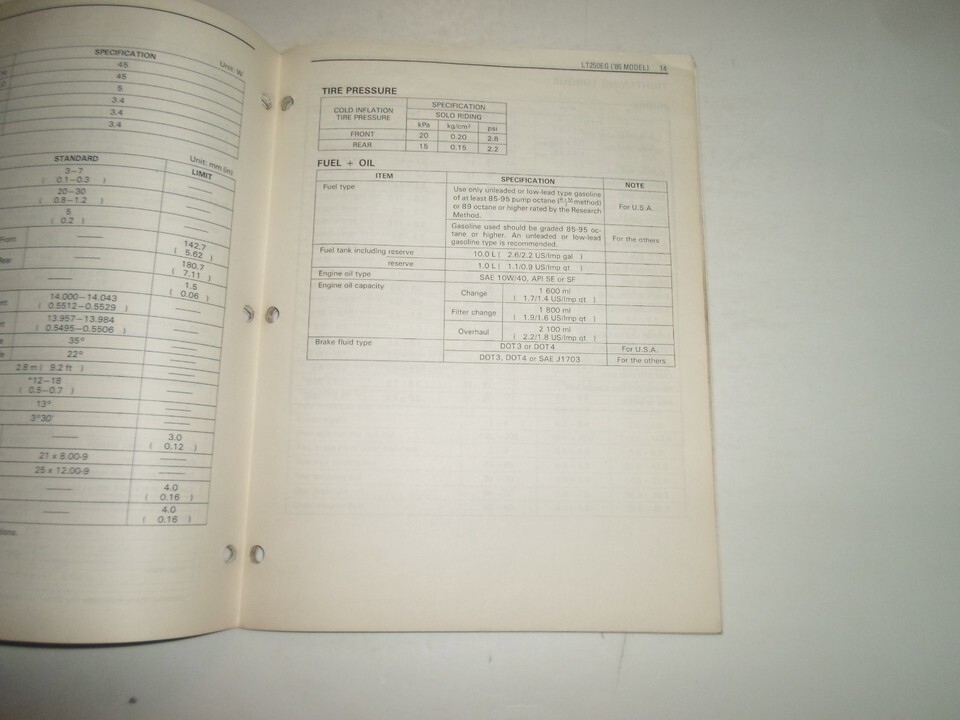 SPECIFICATION
Unit: W
45
45
5
3.4
3.4
3.4
Unit: mm (in)
STANDARD LIMIT
3–7
( 0.1–0.3 )
20–30
( 0.8–1.2 )
5
( 0.2 )
142.7
( 5.62 )
180.7
( 7.11 )
1.5
( 0.06 )
14.000–14.043
( 0.5512–0.5529 )
13.957–13.984
( 0.5495–0.5506 )
35°
22°
2.8 m ( 9.2 ft )
*12–18
( 0.5–0.7 )
13°
3°30'
3.0
( 0.12 )
21 x 8.00-9
25 x 12.00-9
4.0
( 0.16 )
4.0
( 0.16 )
LT250EG ('86 MODEL) 14
TIRE PRESSURE
COLD INFLATION
TIRE PRESSURE
SPECIFICATION
SOLO RIDING
kPa kg/cm² psi
FRONT 20 0.20 2.8
REAR 15 0.15 2.2
FUEL + OIL
ITEM SPECIFICATION NOTE
Fuel type Use only unleaded or low-lead type gasoline
of at least 85-95 pump octane ( method)
or 89 octane or higher rated by the Research
Method.
For U.S.A.
Gasoline used should be graded 85-95 oc-
tane or higher. An unleaded or low-lead
gasoline type is recommended.
For the others
Fuel tank including reserve 10.0 L ( 2.6/2.2 US/Imp gal )
reserve 1.0 L ( 1.1/0.9 US/Imp qt )
Engine oil type SAE 10W/40, API SE or SF
Engine oil capacity Change 1 600 ml
( 1.7/1.4 US/Imp qt )
Filter change 1 800 ml
( 1.9/1.6 US/Imp qt )
Overhaul 2 100 ml
( 2.2/1.8 US/Imp qt )
Brake fluid type DOT3 or DOT4 For U.S.A.
DOT3, DOT4 or SAE J1703 For the others